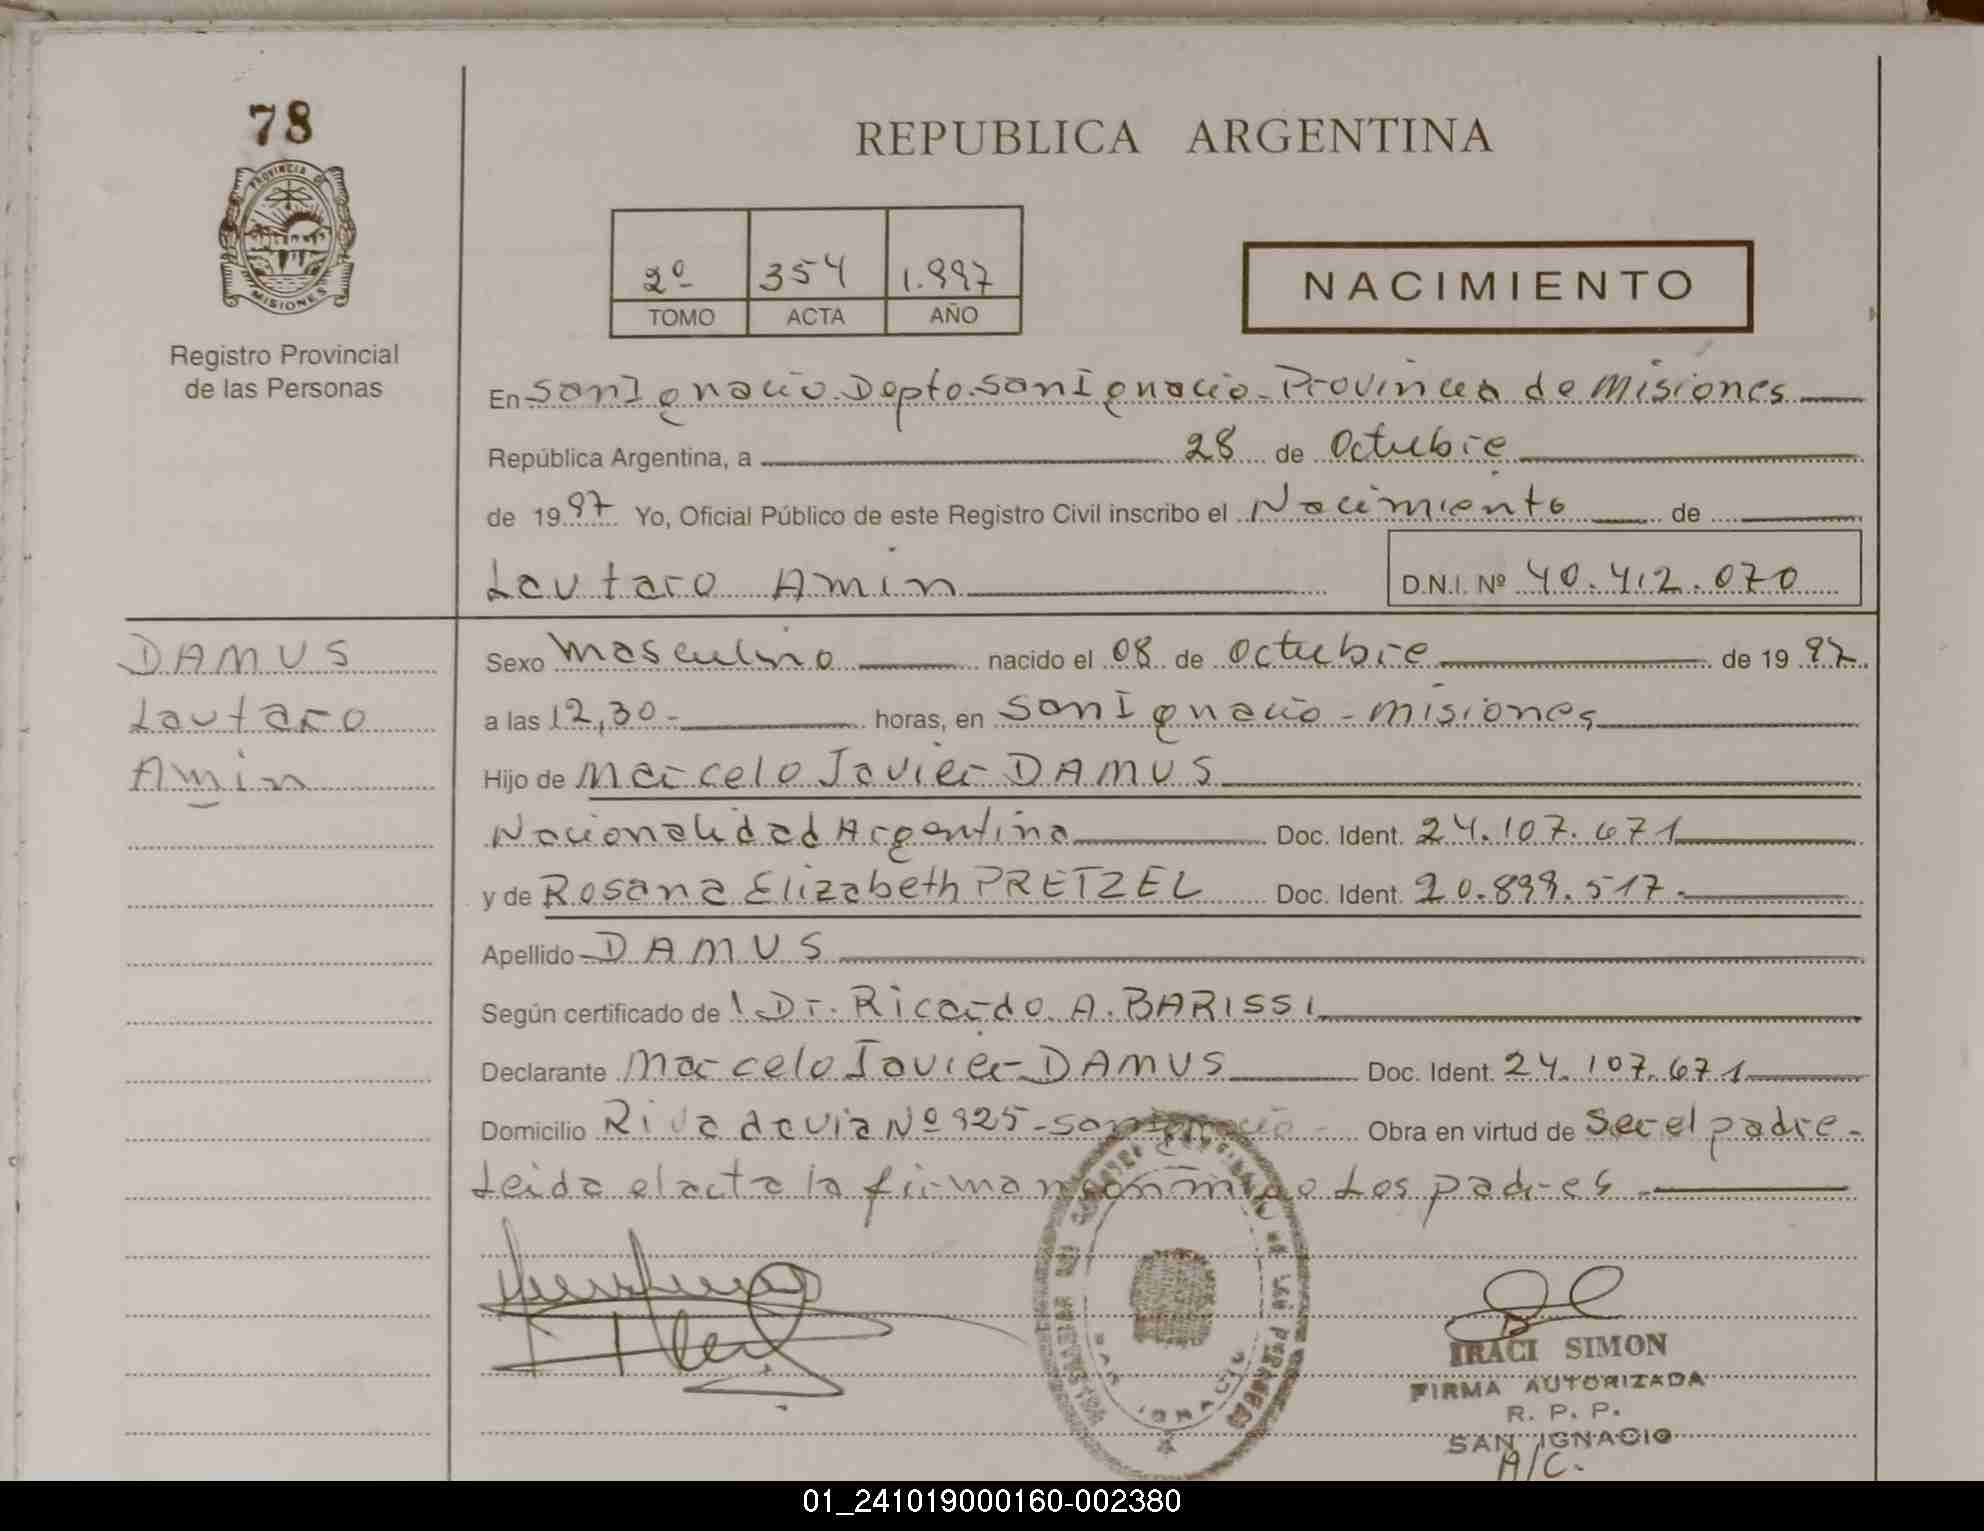 78
PROVINCIA DE
MISIONES
Registro Provincial
de las Personas
REPUBLICA ARGENTINA
2º 354 1.997
TOMO ACTA AÑO
NACIMIENTO
En San Ignacio Depto. San Ignacio - Provincia de Misiones
República Argentina, a 28 de Octubre
de 1997 Yo, Oficial Público de este Registro Civil inscribo el Nacimiento de
Lautaro Amin D.N.I. Nº 40.412.070
DAMUS
Lautaro
Amin
Sexo Masculino nacido el 08 de Octubre de 1997
a las 12,30 - horas, en San Ignacio - Misiones
Hijo de Marcelo Javier DAMUS
Nacionalidad Argentina Doc. Ident. 24.107.671
y de Rosana Elizabeth PRETZEL Doc. Ident. 20.899.517.
Apellido DAMUS
Según certificado del Dr. Ricardo A. BARISSI
Declarante Marcelo Javier DAMUS Doc. Ident. 24.107.671
Domicilio Rivadavia Nº 925 - San Ignacio - Obra en virtud de Ser el padre -
Leida el acta la firman conmigo Los padres
SAN IGNACIO
IRACI SIMON
FIRMA AUTORIZADA
R. P. P.
SAN IGNACIO
A/C.
01_241019000160-002380